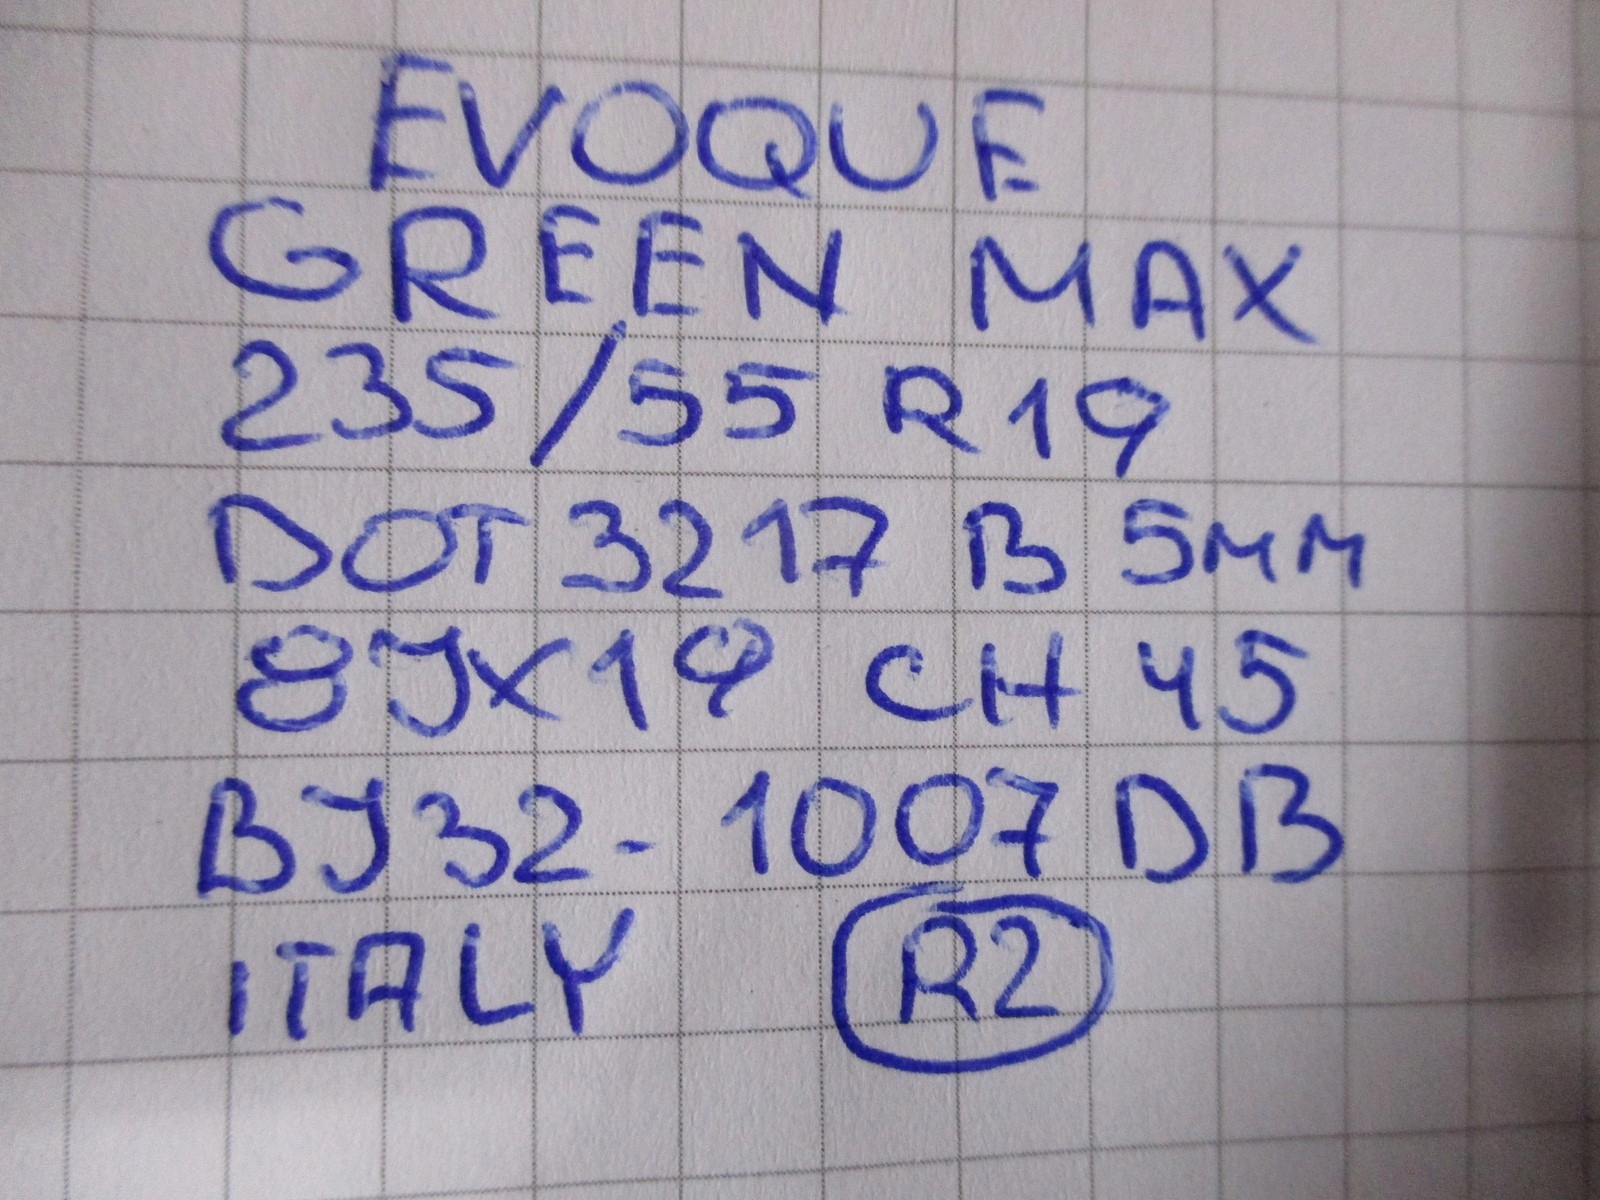 EVOQUE
GREEN MAX
235/55 R19
DOT 3217 B 5MM
8JX19 CH 45
BJ32-1007DB
ITALY R2